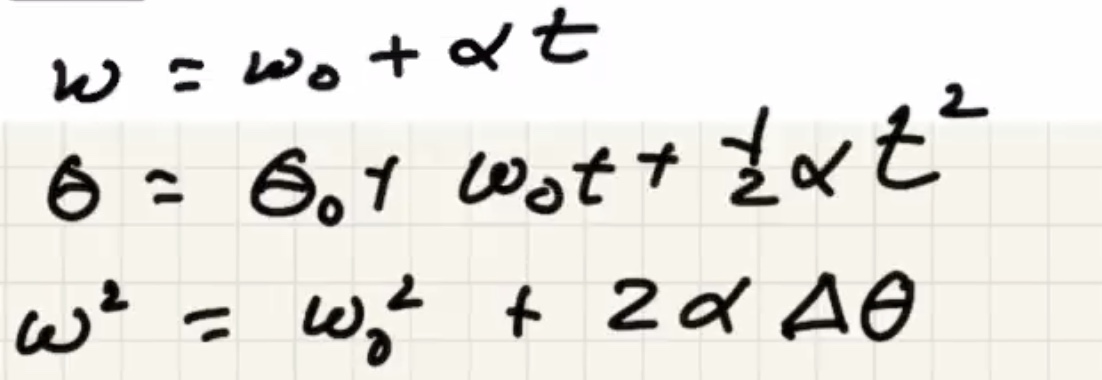 ω = ω₀ + αt
θ = θ₀ + ω₀t + ½αt²
ω² = ω₀² + 2αΔθ